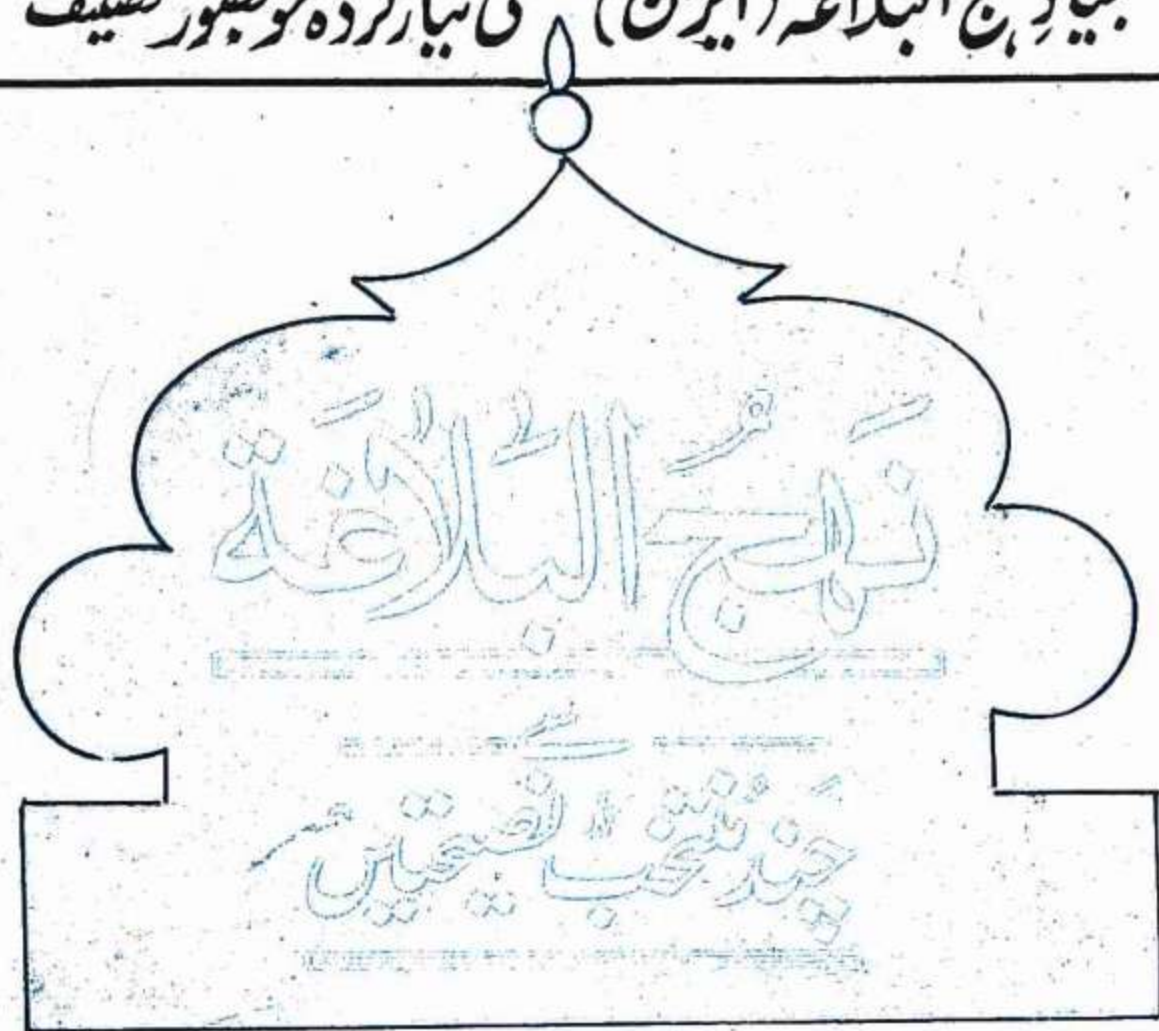 بنیادِ نہج البلاغہ (ایران) کی تیار کردہ خوبصورت تصنیف
نَہْجُ البَلَاغَة
سے
چند منتخب نصیحتیں